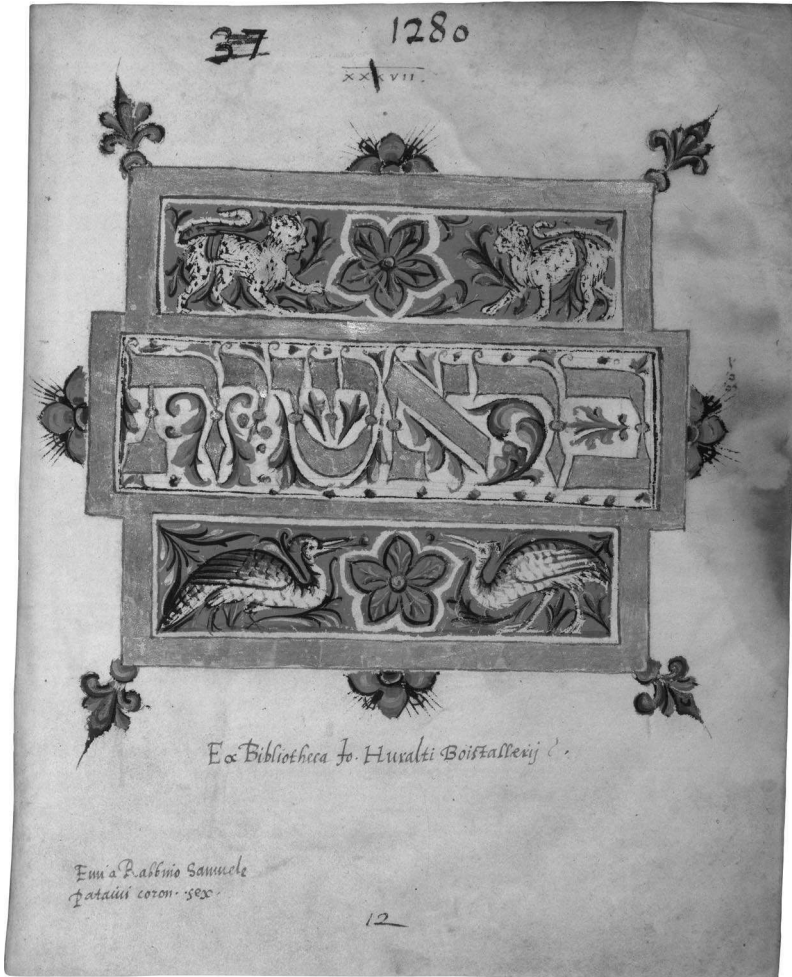 37 1280
XXXVII.
בראשית
Ex Bibliotheca Jo. Huralti Boistallerij
Emi a Rabbino Samuele
patauii coron. sex.
12